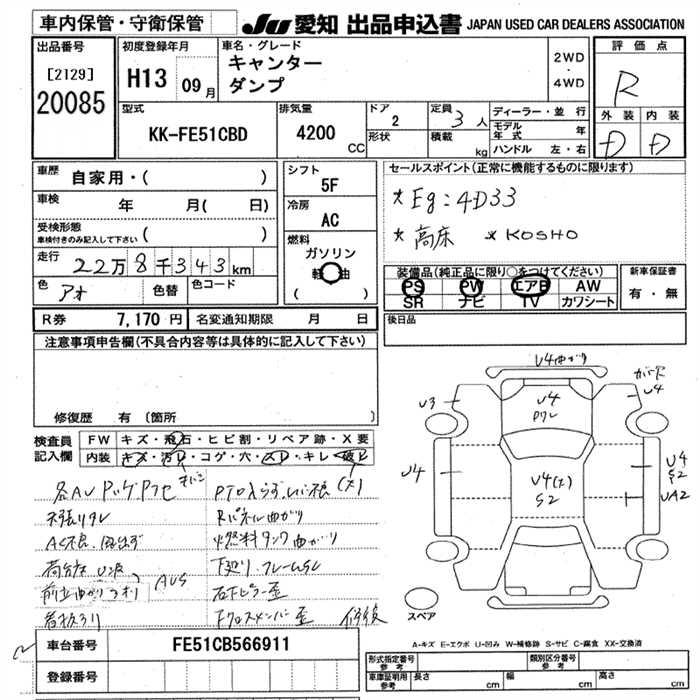 車内保管・守衛保管
JU 愛知 出品申込書 JAPAN USED CAR DEALERS ASSOCIATION
出品番号
[2129]
20085
初度登録年月
H13 09月
車名・グレード
キャンター
ダンプ
2WD
・
4WD
評価点
R
外装 内装
D D
型式
KK-FE51CBD
排気量
4200 CC
ドア
2
形状
定員
3 人
積載
kg
ディーラー・並行
モデル年式 年
ハンドル 左・右
車歴
自家用・( )
車検
年 月( 日)
受検形態
車検付きのみ記入して下さい ( )
走行 22万8千343km
色 アオ 色替 色コード
シフト
5F
冷房
AC
燃料
ガソリン
軽油
( )
セールスポイント(正常に機能するものに限ります)
* Eg:4D33
* 高床 * KOSHO
装備品(純正品に限り○をつけてください)
PS PW エアB AW
SR ナビ TV カワシート
新車保証書
有・無
R券 7,170円 名変通知期限 月 日
後日品
注意事項申告欄(不具合内容等は具体的に記入して下さい)
修復歴 有 〔箇所
検査員記入欄
FW キズ・飛石・ヒビ割・リペア跡・X要
内装 キズ・汚レ・コゲ・穴・スレ・キレ・破レ
PTO入らず
Rパネル曲がり
燃料タンク曲がり
下廻り、フレームサビ
右下ピラー歪
下クロスメンバー歪 修復
AC不良、風出ず
U4(曲がり)
U3
U4
U4
U4
U4(I)
S2
U4
S2
UA2
スペア
車台番号 FE51CB566911
登録番号
A-キズ E-エクボ U-凹み W-補修跡 S-サビ C-腐食 XX-交換済
形式指定番号
参考
類別区分番号
参考
車庫証明用
参考
長さ cm 幅 cm 高さ cm